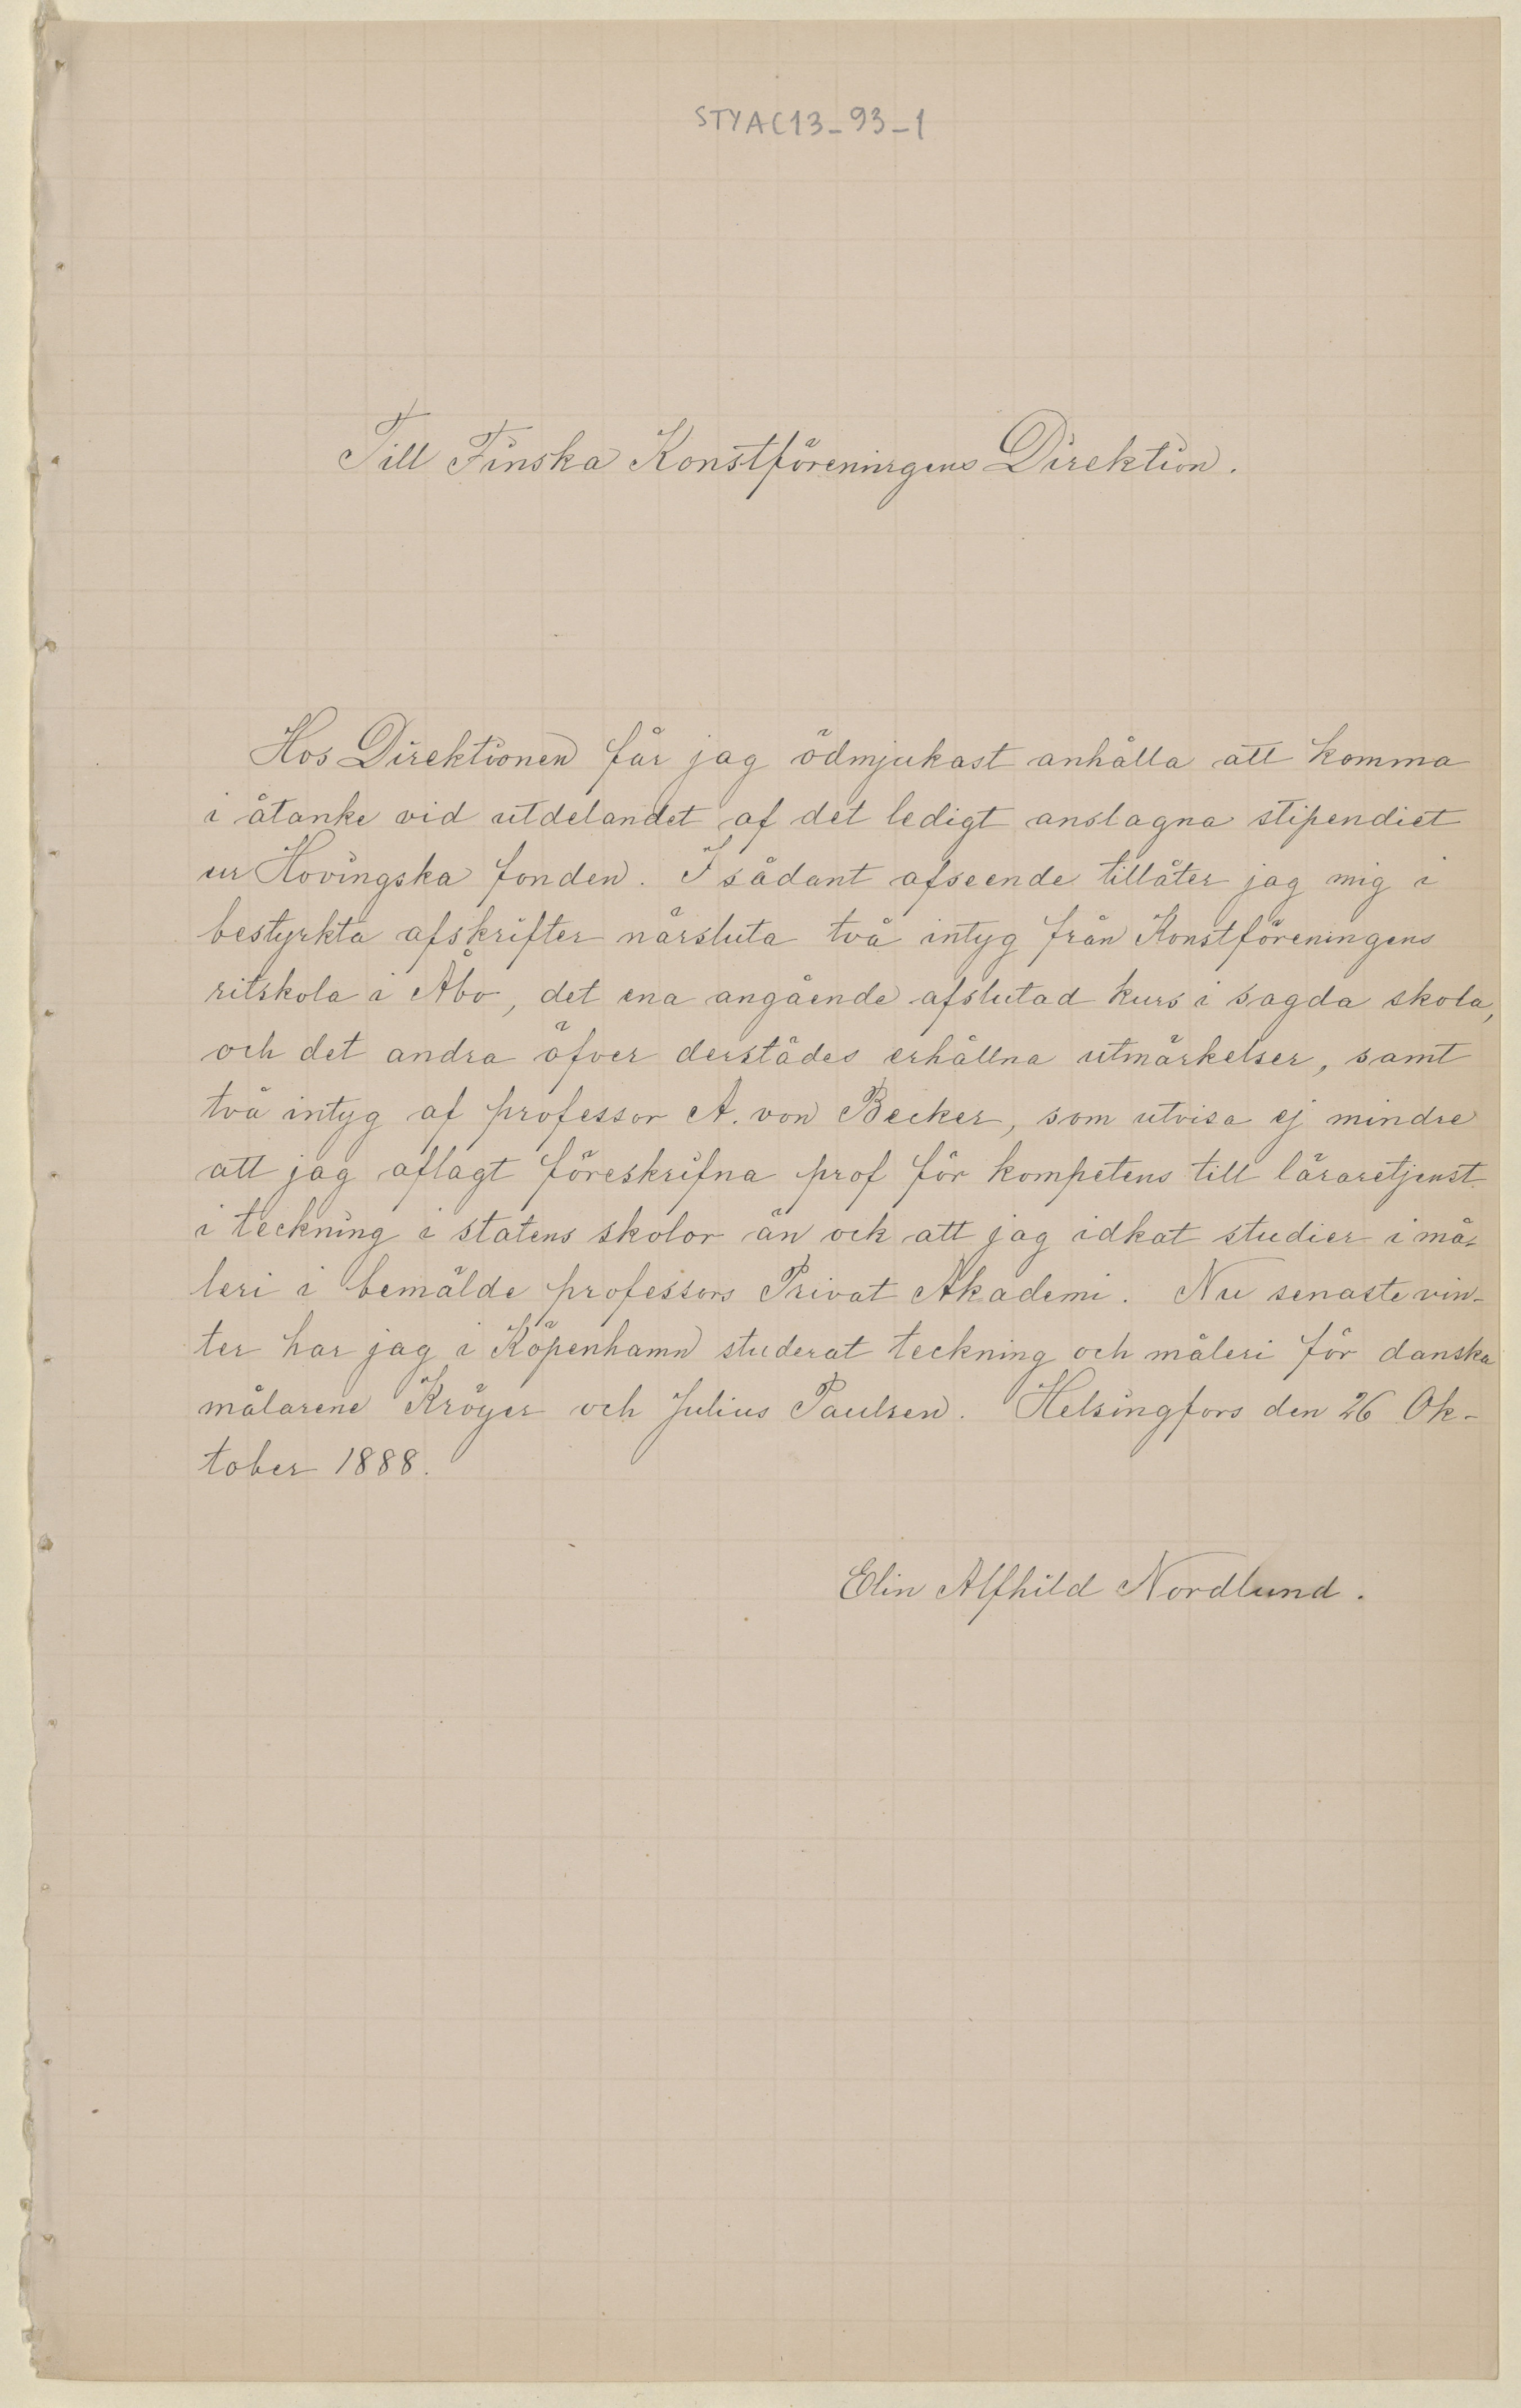 STYAC13_93_1
Till Finska Konstföreningens Direktion.
Hos Direktionen får jag ödmjukast anhålla att komma
i åtanke vid utdelandet af det ledigt anslagna stipendiet
ur Hovingska fonden. I sådant afseende tillåter jag mig i
bestyrkta afskrifter närsluta två intyg från Konstföreningens
ritskola i Åbo, det ena angående afslutad kurs i sagda skola,
och det andra öfver derstädes erhållna utmärkelser, samt
två intyg af professor A. von Becker, som utvisa ej mindre
att jag aflagt föreskrifna prof för kompetens till läraretjenst
i teckning i statens skolor än ock att jag idkat studier i må-
leri i bemälde professors Privat Akademi. Nu senaste vin-
ter har jag i Köpenhamn studerat teckning och måleri för danska
målarene Kröyer och Julius Paulsen. Helsingfors den 26 Ok-
tober 1888.
Elin Alfhild Nordlund.